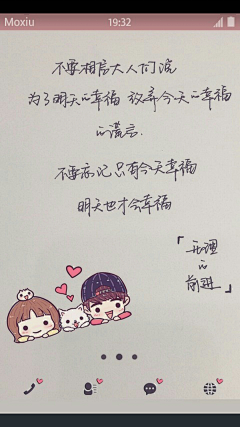 Moxiu 19:32
不要相信大人们说
为了明天的幸福 放弃今天的幸福
的谎言.
不要忘记只有今天幸福
明天也才会幸福
「
的
前进」